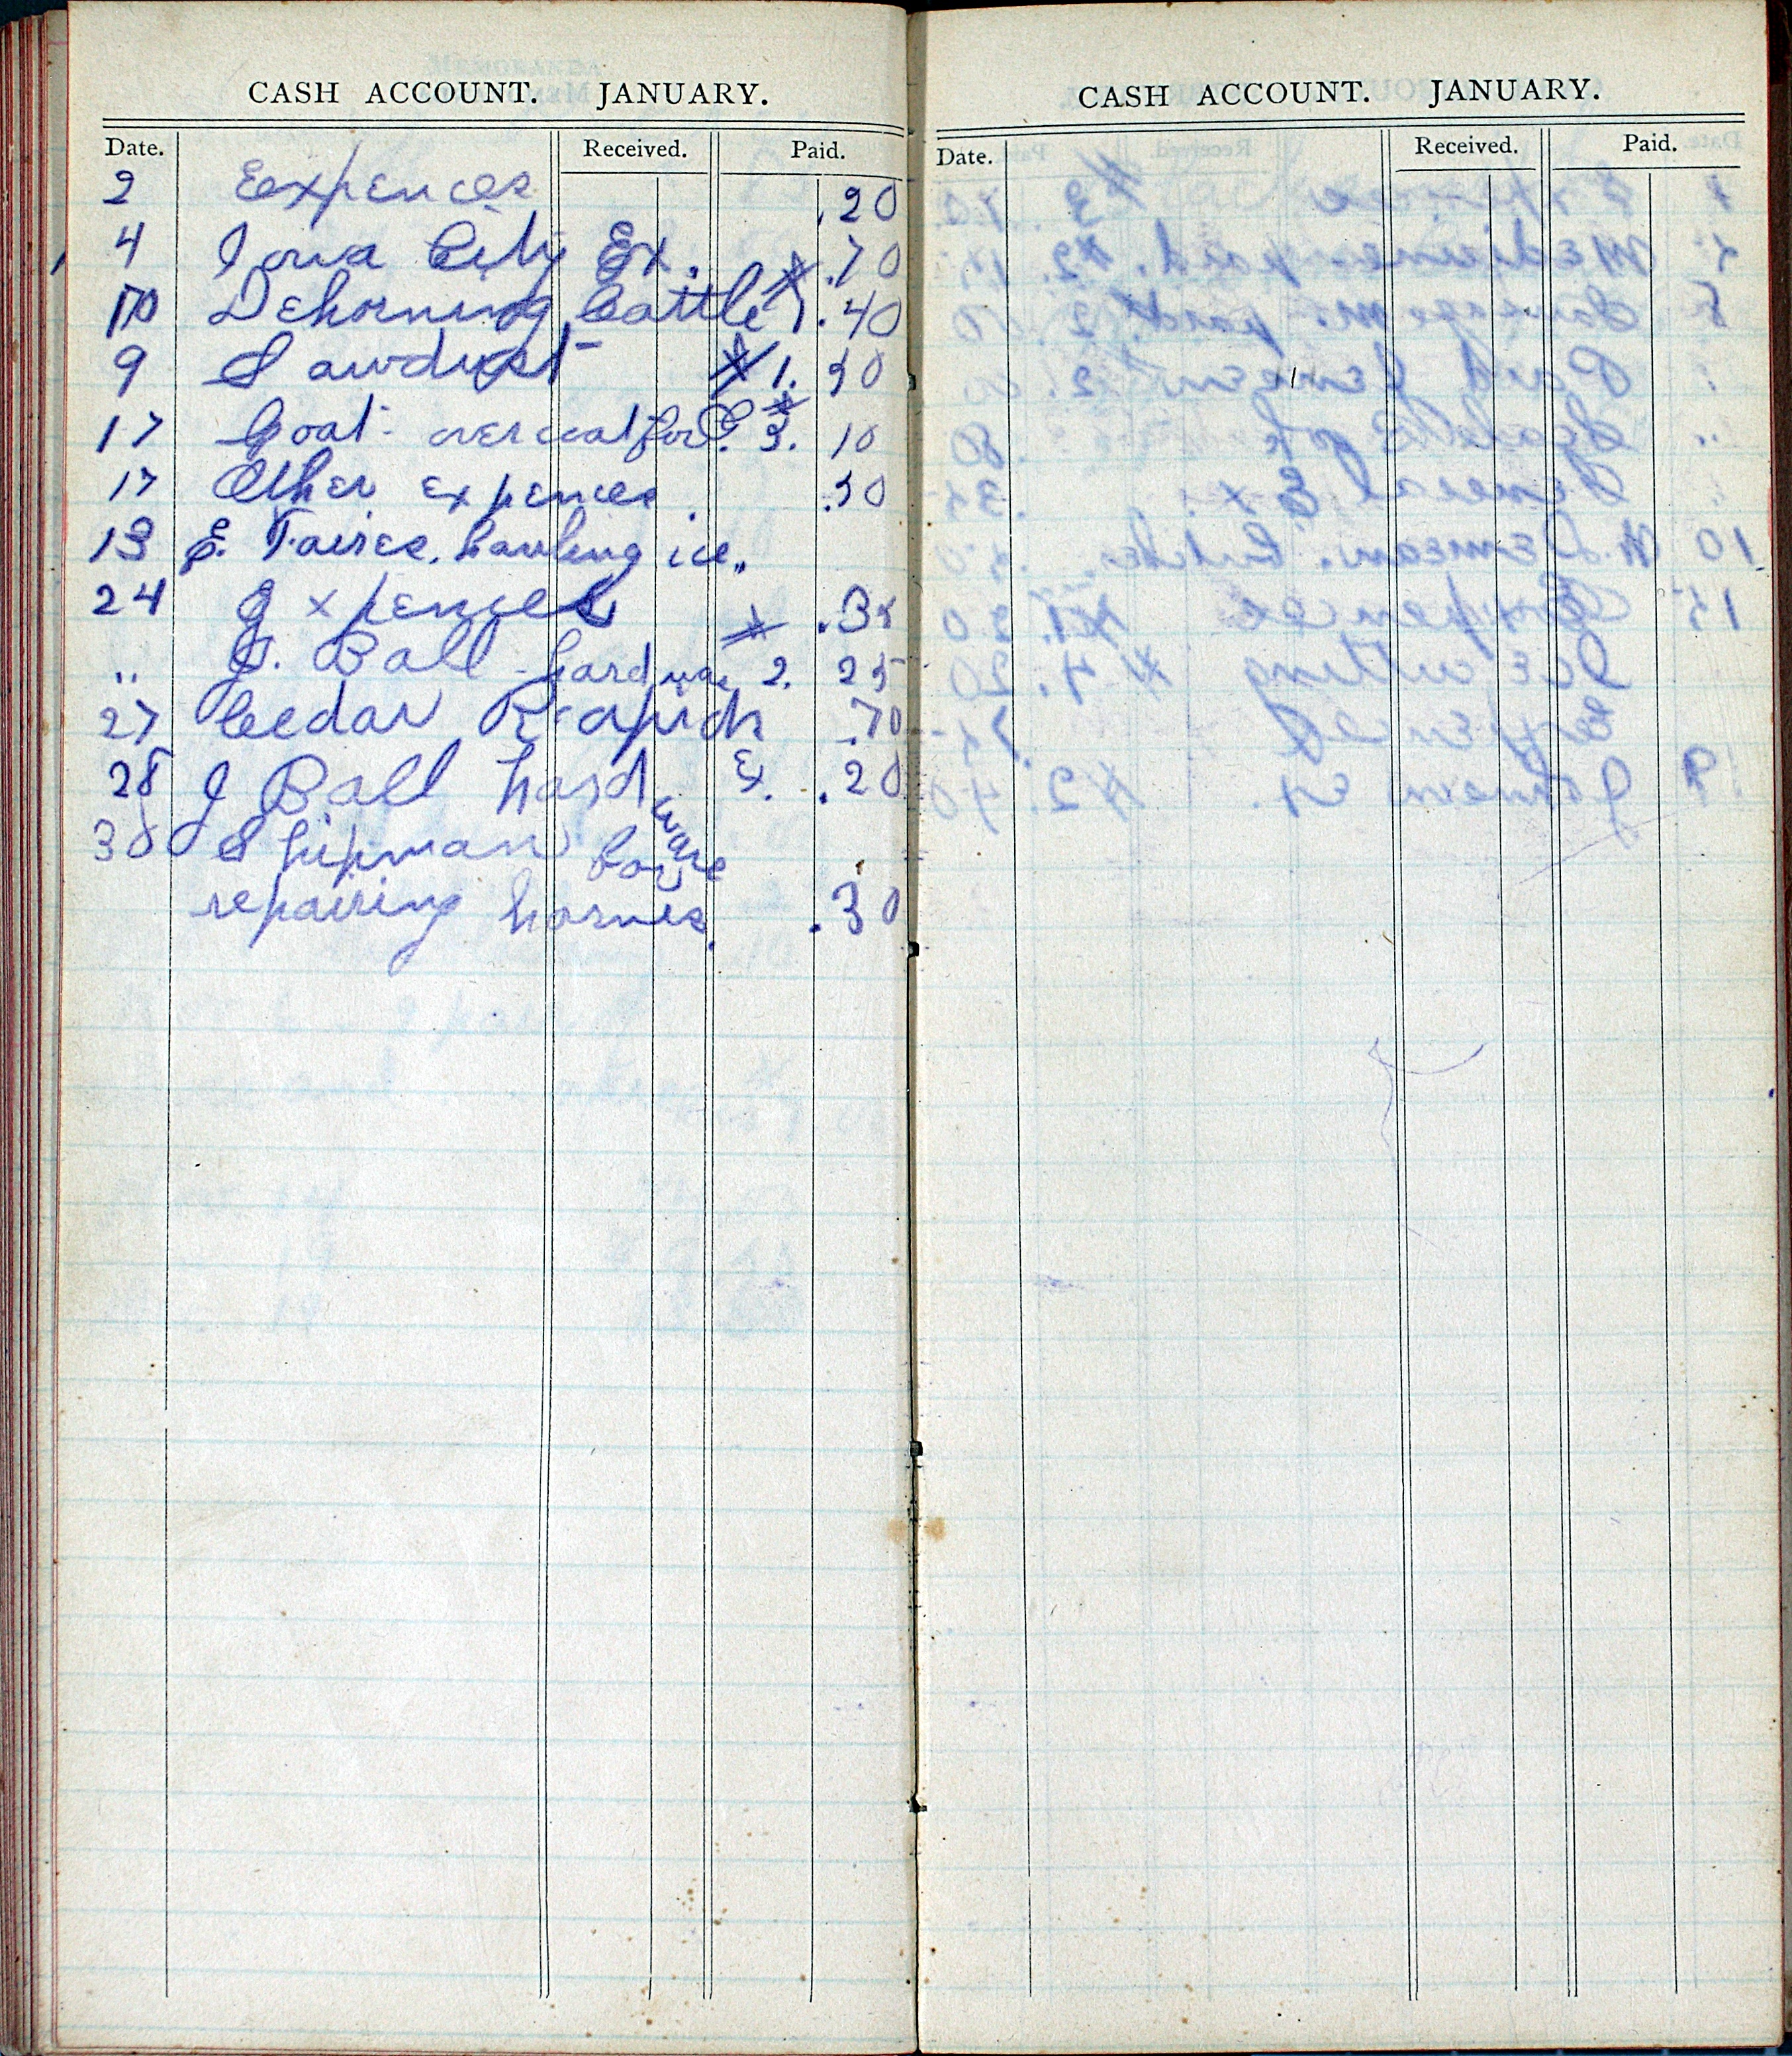 CASH ACCOUNT. JANUARY.
Date. Received. Paid.
2 Eexpences .20
4 Iowa City Ex. .70
10 Dehorning Cattle # 7.40
9 Sawdust # 1.50
17 Coat- overcoat for C. # 3.10
17 Other expences. .50
13 E. Taires. hauling ice„
24 Expences .35
„ J. Ball hardware # 2.25
27 Cedar Rapids Ex. .70
28 J Ball hardware .20
30 Shipman for
repairing harnes. .30
CASH ACCOUNT. JANUARY.
Date. Received. Paid.